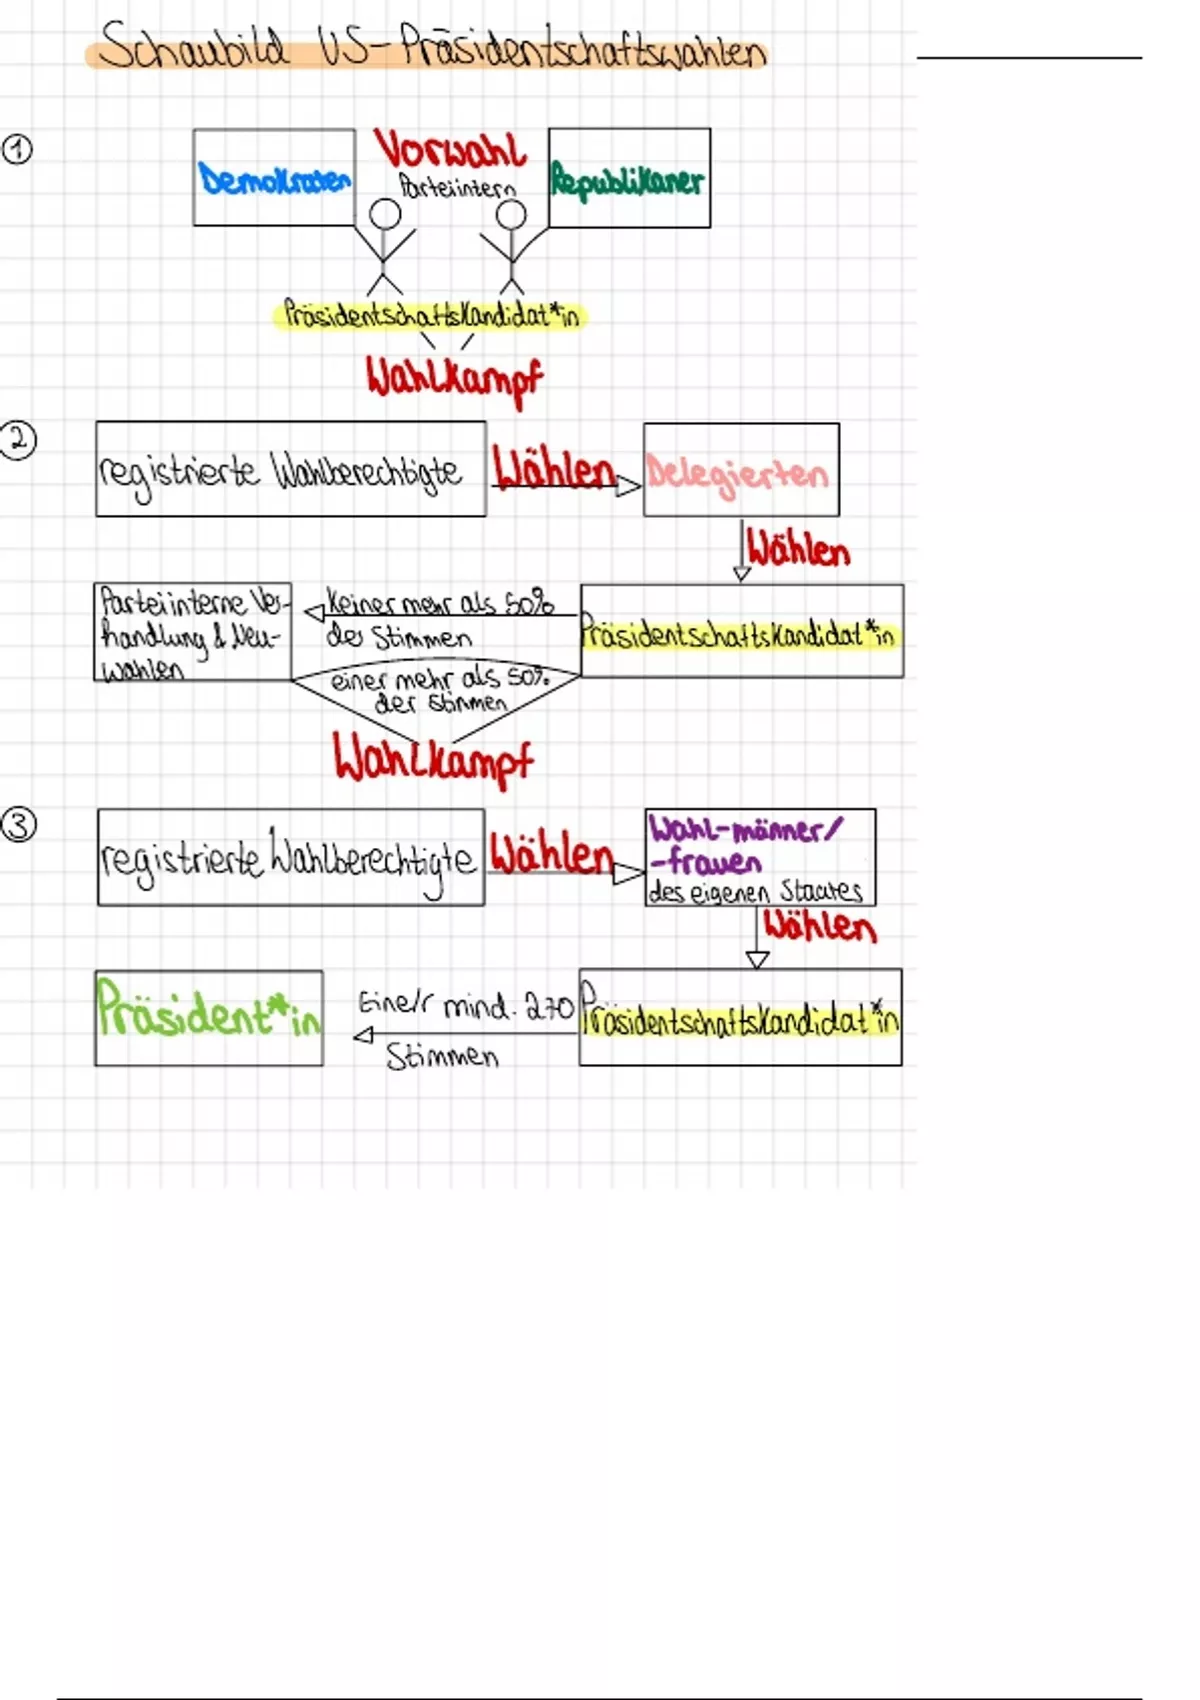 Schaubild US-Präsidentschaftswahlen
①
Demokraten
Vorwahl
Parteiintern
Republikaner
Präsidentschaftskandidat*in
Wahlkampf
②
registrierte Wahlberechtigte
Wählen
Delegierten
Wählen
Parteiinterne Ver-
handlung & Neu-
wahlen
Keiner mehr als 50%
der Stimmen
Präsidentschaftskandidat*in
einer mehr als 50%
der Stimmen
Wahlkampf
③
registrierte Wahlberechtigte
Wählen
Wahl-männer/
-frauen
des eigenen Staates
Wählen
Präsident*in
Eine/r mind. 270
Stimmen
Präsidentschaftskandidat*in